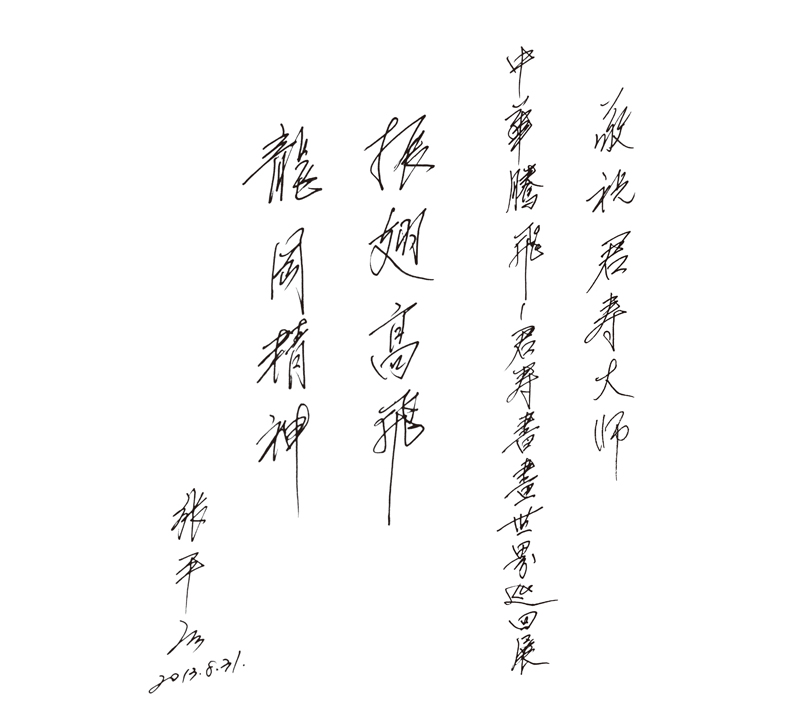 敬祝君寿大师
中華騰飛-君寿書畫世界巡回展
振翅高飛
龍岡精神
張平
2013.8.31.